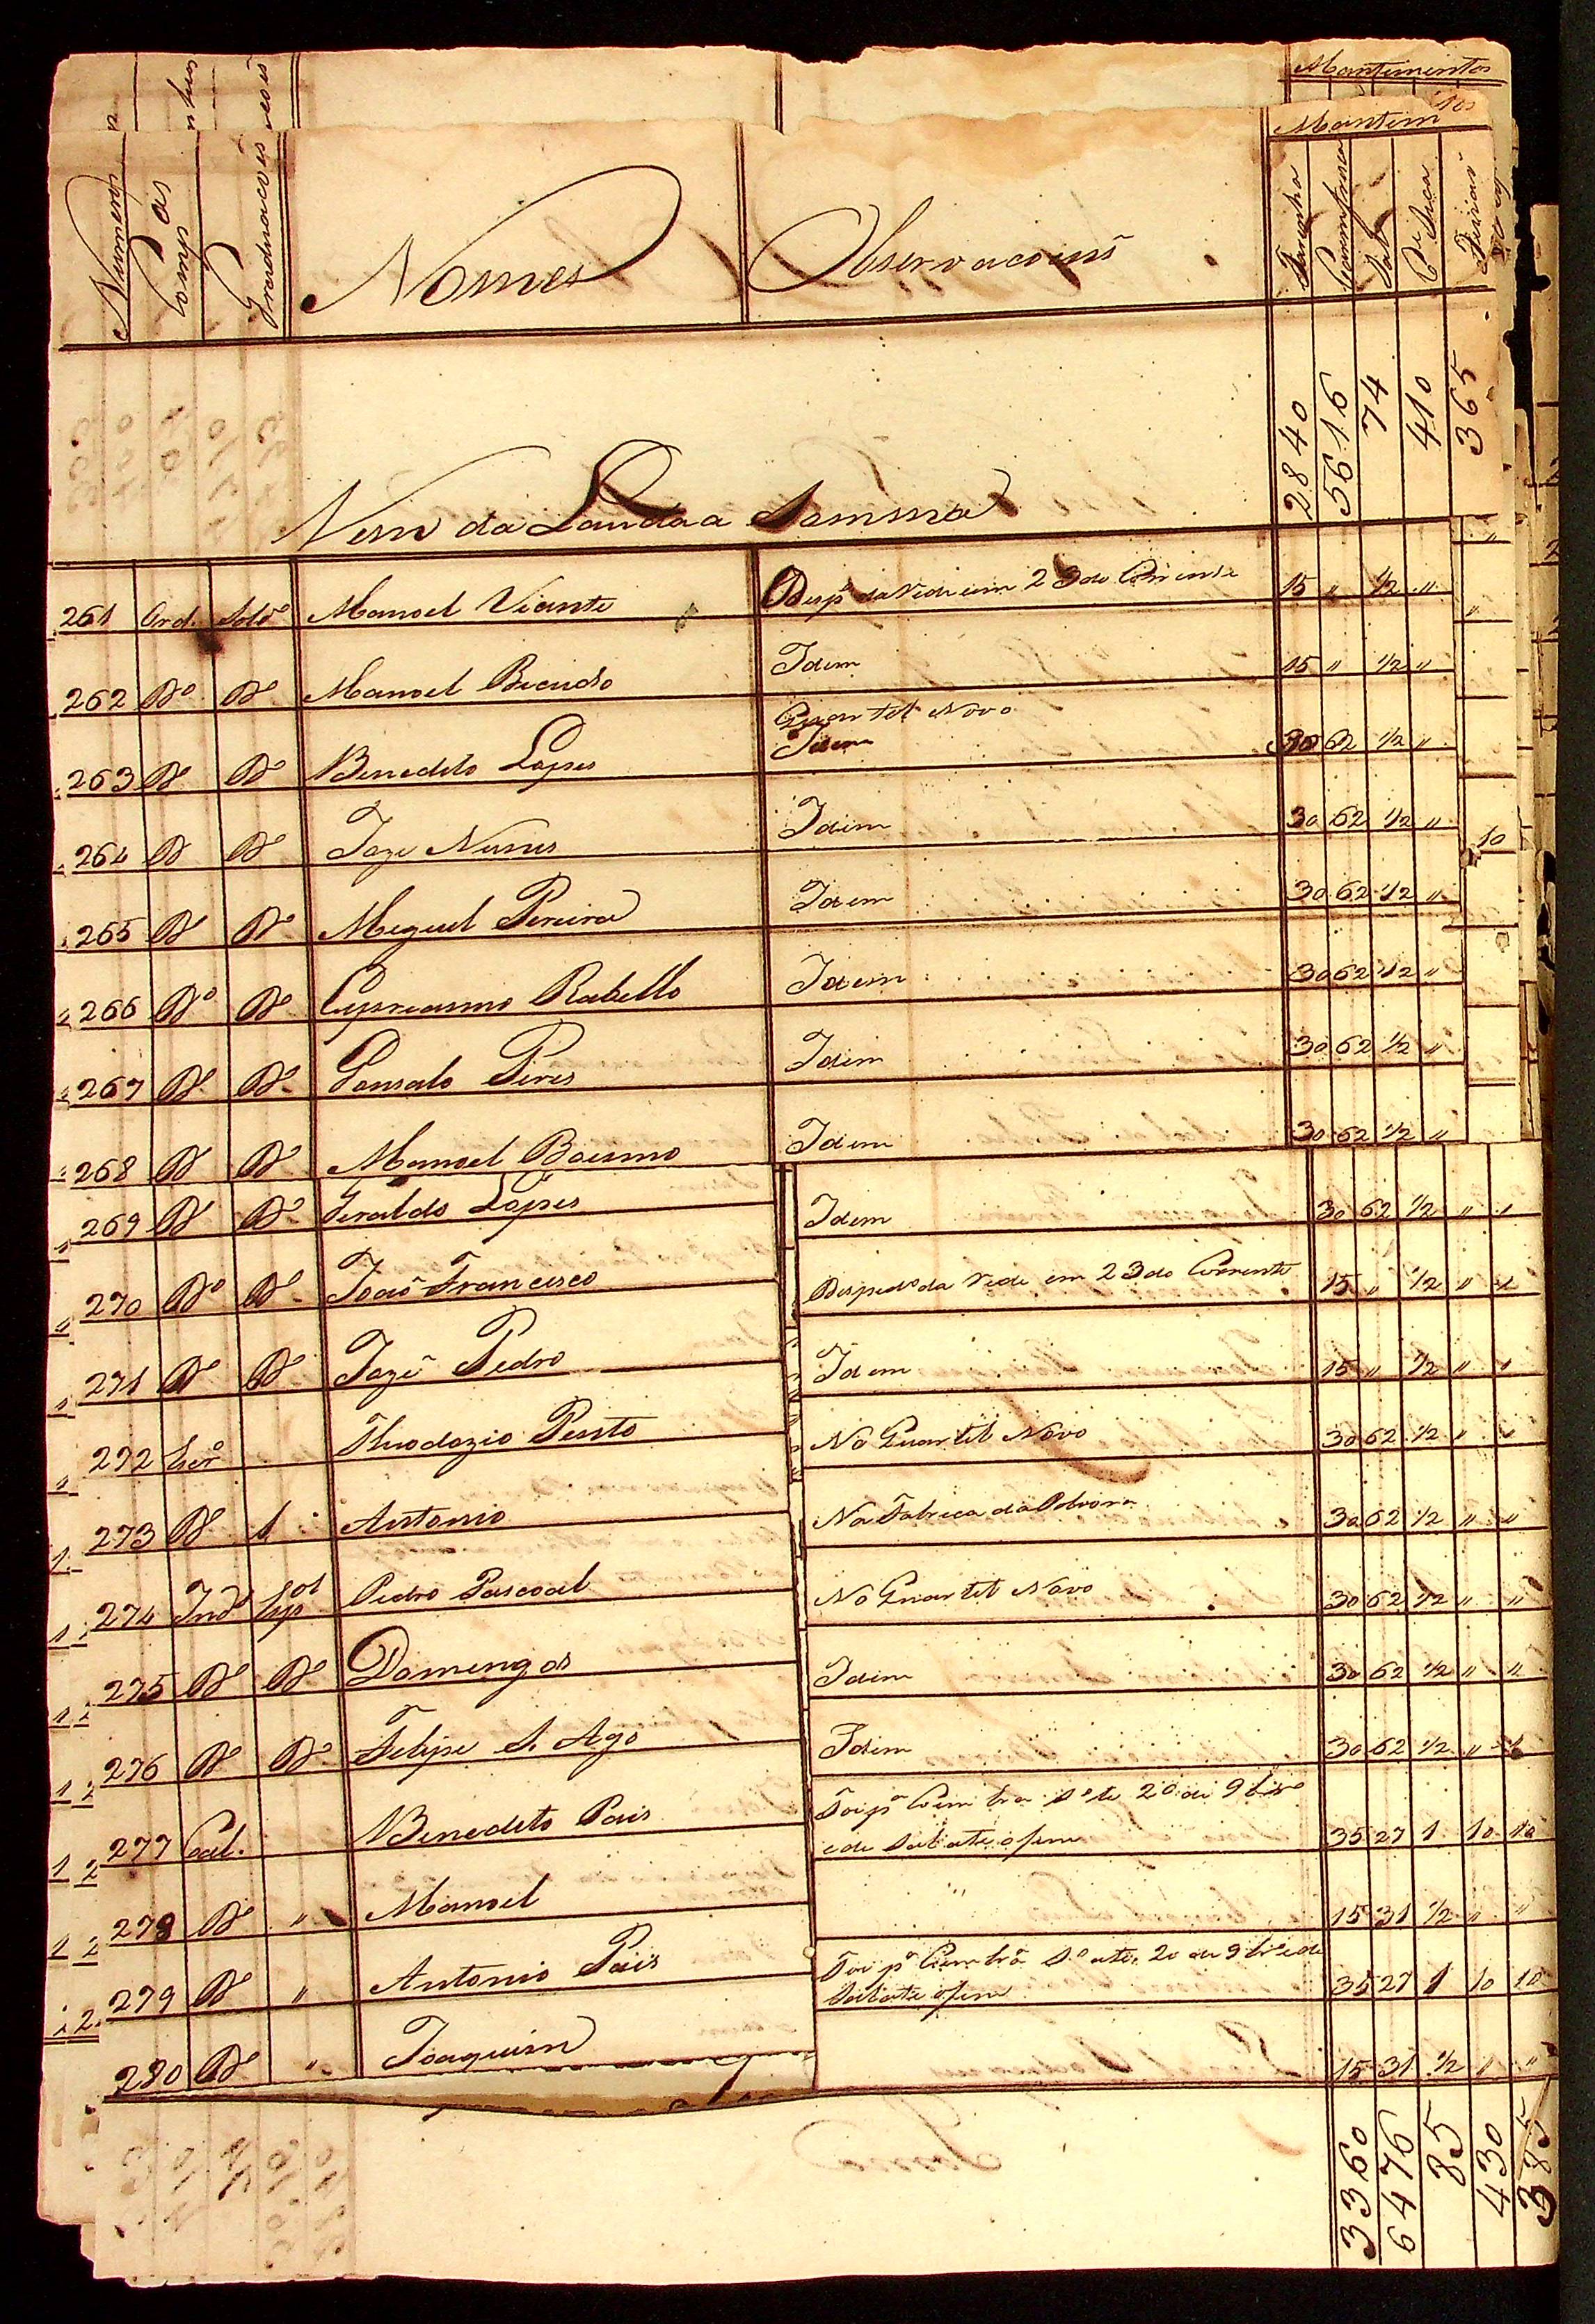 Mantimentos
Mantim tos
Numeros
Comp as
Graduacoes
Nomes
Observacoens
Farinha
Sal
2840
5616
74
410
365
Vem da Lauda a Somma
261 Ord. Sold o Manoel Vicente Desp o da Rede em 23 do Corrente 15 " 1/2 "
262 D o D o Manoel Bicudo Idem 15 " 1/2 "
Quartel Novo
263 D o D o Benedito Lopes Idem 30 62 1/2 "
264 D o D o Joze Nunes Idem 30 62 1/2 " 10
265 D o D o Miguel Pereira Idem 30 62 1/2 "
266 D o D o Cypreanno Rabello Idem 30 62 1/2 "
267 D o D o Gonsalo Pires Idem 30 62 1/2 "
268 D o D o Manoel Idem 30 62 1/2 "
269 D o D o Geraldo Lopes Idem 30 62 1/2 " "
270 D o D o João Francisco Desped o da Rede em 23 do Corrente 15 " 1/2 " "
271 D o D o Joze Pedro Idem 15 " 1/2 " "
272 No Quartel Novo 30 62 1/2 " "
273 D o 1 Antonio Na Fabrica da Polvora 30 62 1/2 " "
274 Ind o Pedro Pascoal No Quartel Novo 30 62 1/2 " "
275 D o D o Domingos Idem 30 62 1/2 " "
276 D o D o Felipe S. Ago Idem 30 62 1/2 " "
Foi p a Coimbra 20 de 9 bro
277 Cal. Benedito Pais e de Sal ate o fim 35 27 1 10 10
278 D o " Manoel " 15 31 1/2 " "
Foi p a Coimbrã ate 20 de 9 br o e de
279 D o " Antonio Pais Sal ate o fim 35 27 1 10 10
280 D o " Joaquim 15 31 1/2 " "
3360
6476
85
430
385